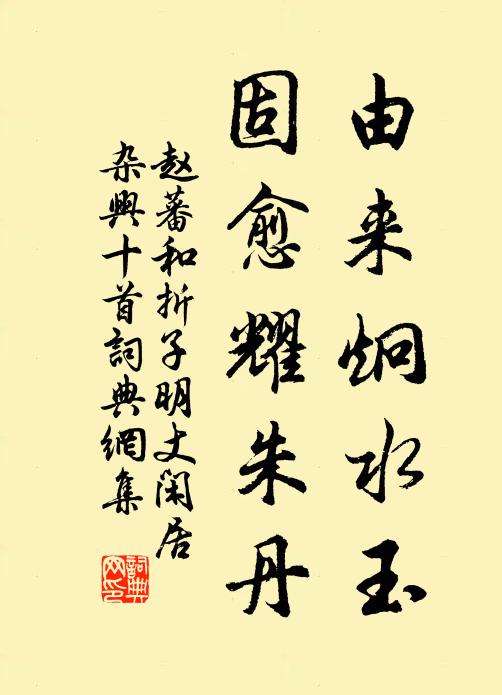 由来炯水玉
固愈耀朱丹
赵蕃和折子明丈闲居
杂兴十首词典网集
词典
网印